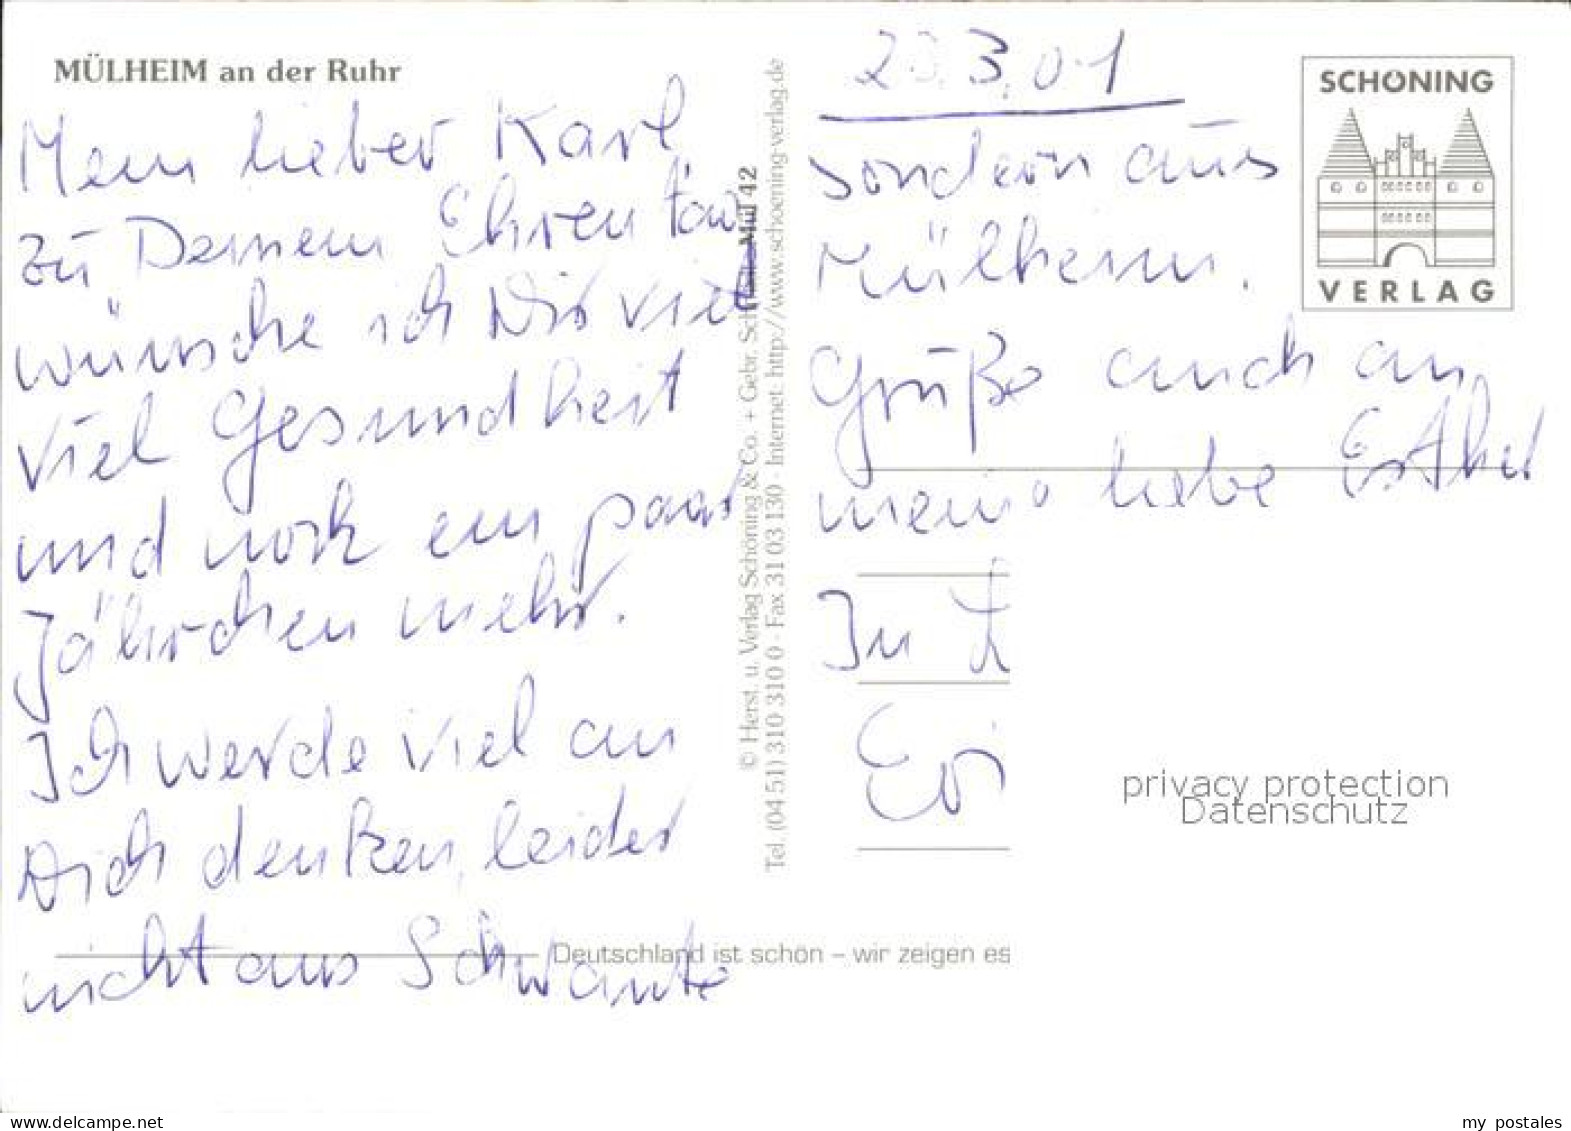 MÜLHEIM an der Ruhr
Mein lieber Karl
zu Deinem Ehrentag
wünsche ich Dir viel
viel Gesundheit
und noch ein paar
Jährchen mehr.
Ich werde viel an
Dich denken, leider
nicht aus Schwante
© Herst. u. Verlag Schöning & Co. + Gebr. Schmidt Mül 42
Tel. (04 51) 310 310 0 · Fax 31 03 130 · Internet: http://www.schoening-verlag.de
3.01
sondern aus
Mülheim.
Grüße auch an
meine liebe Esther
In L
Eri
SCHÖNING
VERLAG
privacy protection
Datenschutz
Deutschland ist schön – wir zeigen es
www.delcampe.net
my_postales